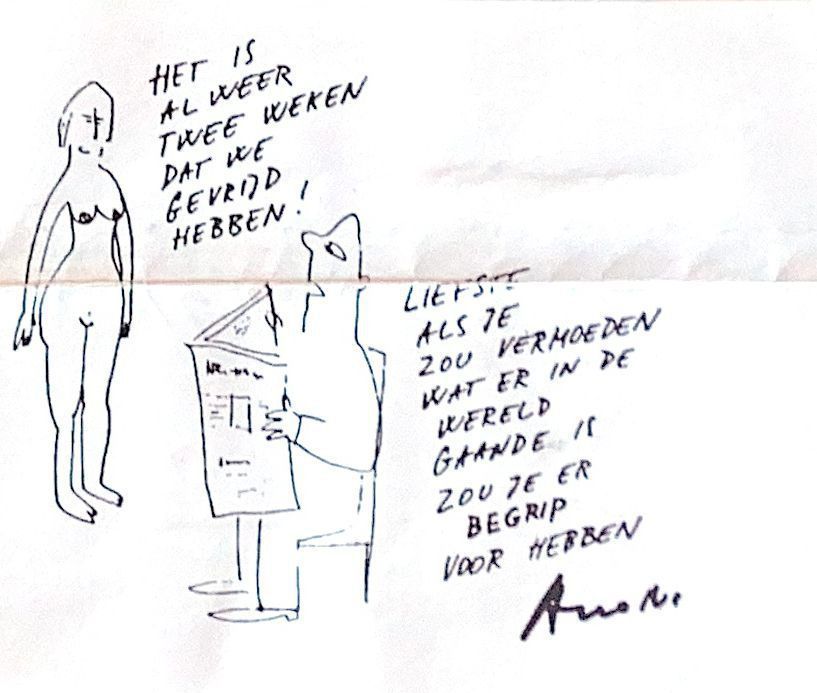 HET IS
AL WEER
TWEE WEKEN
DAT WE
GEVRIJD
HEBBEN!
LIEFSTE
ALS JE
ZOU VERMOEDEN
WAT ER IN DE
WERELD
GAANDE IS
ZOU JE ER
BEGRIP
VOOR HEBBEN